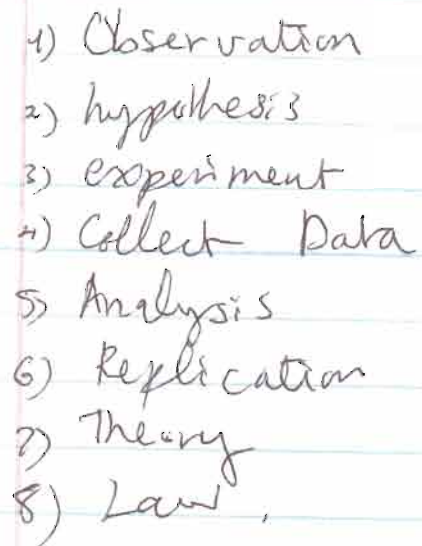 1) Observation
2) hypothesis
3) experiment
4) Collect Data
5) Analysis
6) Replication
7) Theory
8) Law.